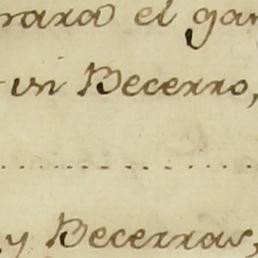 para el gan
un Becerro,
y Becerras,